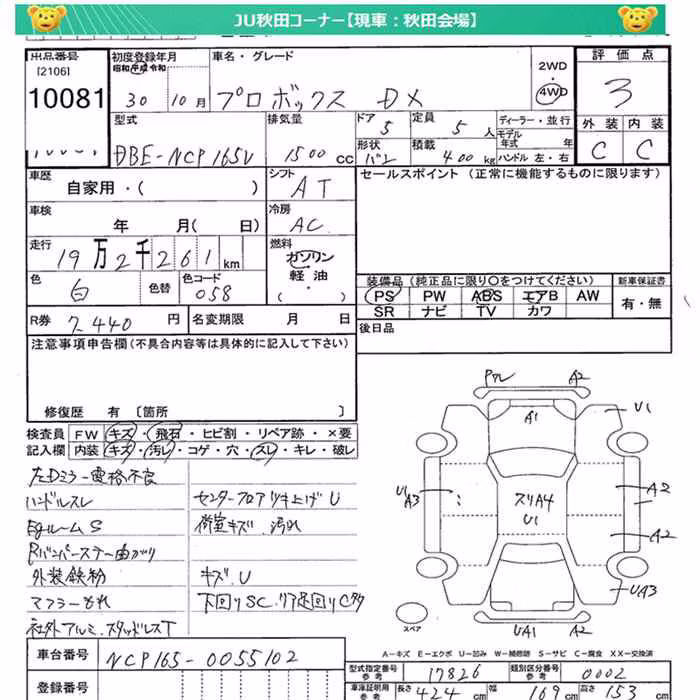 JU秋田コーナー【現車：秋田会場】
出品番号 初度登録年月 車名・グレード 2WD 評価点
[2106] 昭和 平成 令和 4WD
10081 30 10月 プロボックス DX 3
型式 排気量 ドア 定員 ディーラー・並行 外装 内装
5 5人 モデル年式 年
DBE-NCP165V 1500cc 形状 バン 積載 400kg ハンドル 左・右 C C
車歴 シフト セールスポイント（正常に機能するものに限ります）
自家用・( ) AT
車検 冷房
年 月( 日) AC
走行 燃料
19万2千261km ガソリン
軽・油
色 色替 色コード ( ・ ) 装備品（純正品に限り〇をつけてください） 新車保証書
白 058 PS PW ABS エアB AW 有・無
SR ナビ TV カワ
R券 7440円 名変期限 月 日 後日品
注意事項申告欄（不具合内容等は具体的に記入して下さい）
修復歴 有 〔箇所 〕
検査員 FW キズ・飛石・ヒビ割・リペア跡・×要
記入欄 内装 キズ・汚レ・コゲ・穴・スレ・キレ・破レ
左Dミラー電格不良
ハンドルスレ センターフロアツキ上げU
EgルームS 荷室キズ、汚れ
Rバンパーステー曲がり
外装鉄粉 キズ.U
マフラーもれ 下回りSC.リア足回りC多
社外アルミ.スタッドレスT
A2
A1
U1
U1
A3
スリA4
U1
A2
A2
UA3
UA1 A2
スペア
A－キズ E－エクボ U－凹み W－補修跡 S－サビ C－腐食 XX－交換済
車台番号 NCP165-0055102
型式指定番号 参考 17826 類別区分番号 参考 0002
登録番号
車庫証明用 参考 長さ 424cm 幅 169cm 高さ 153cm